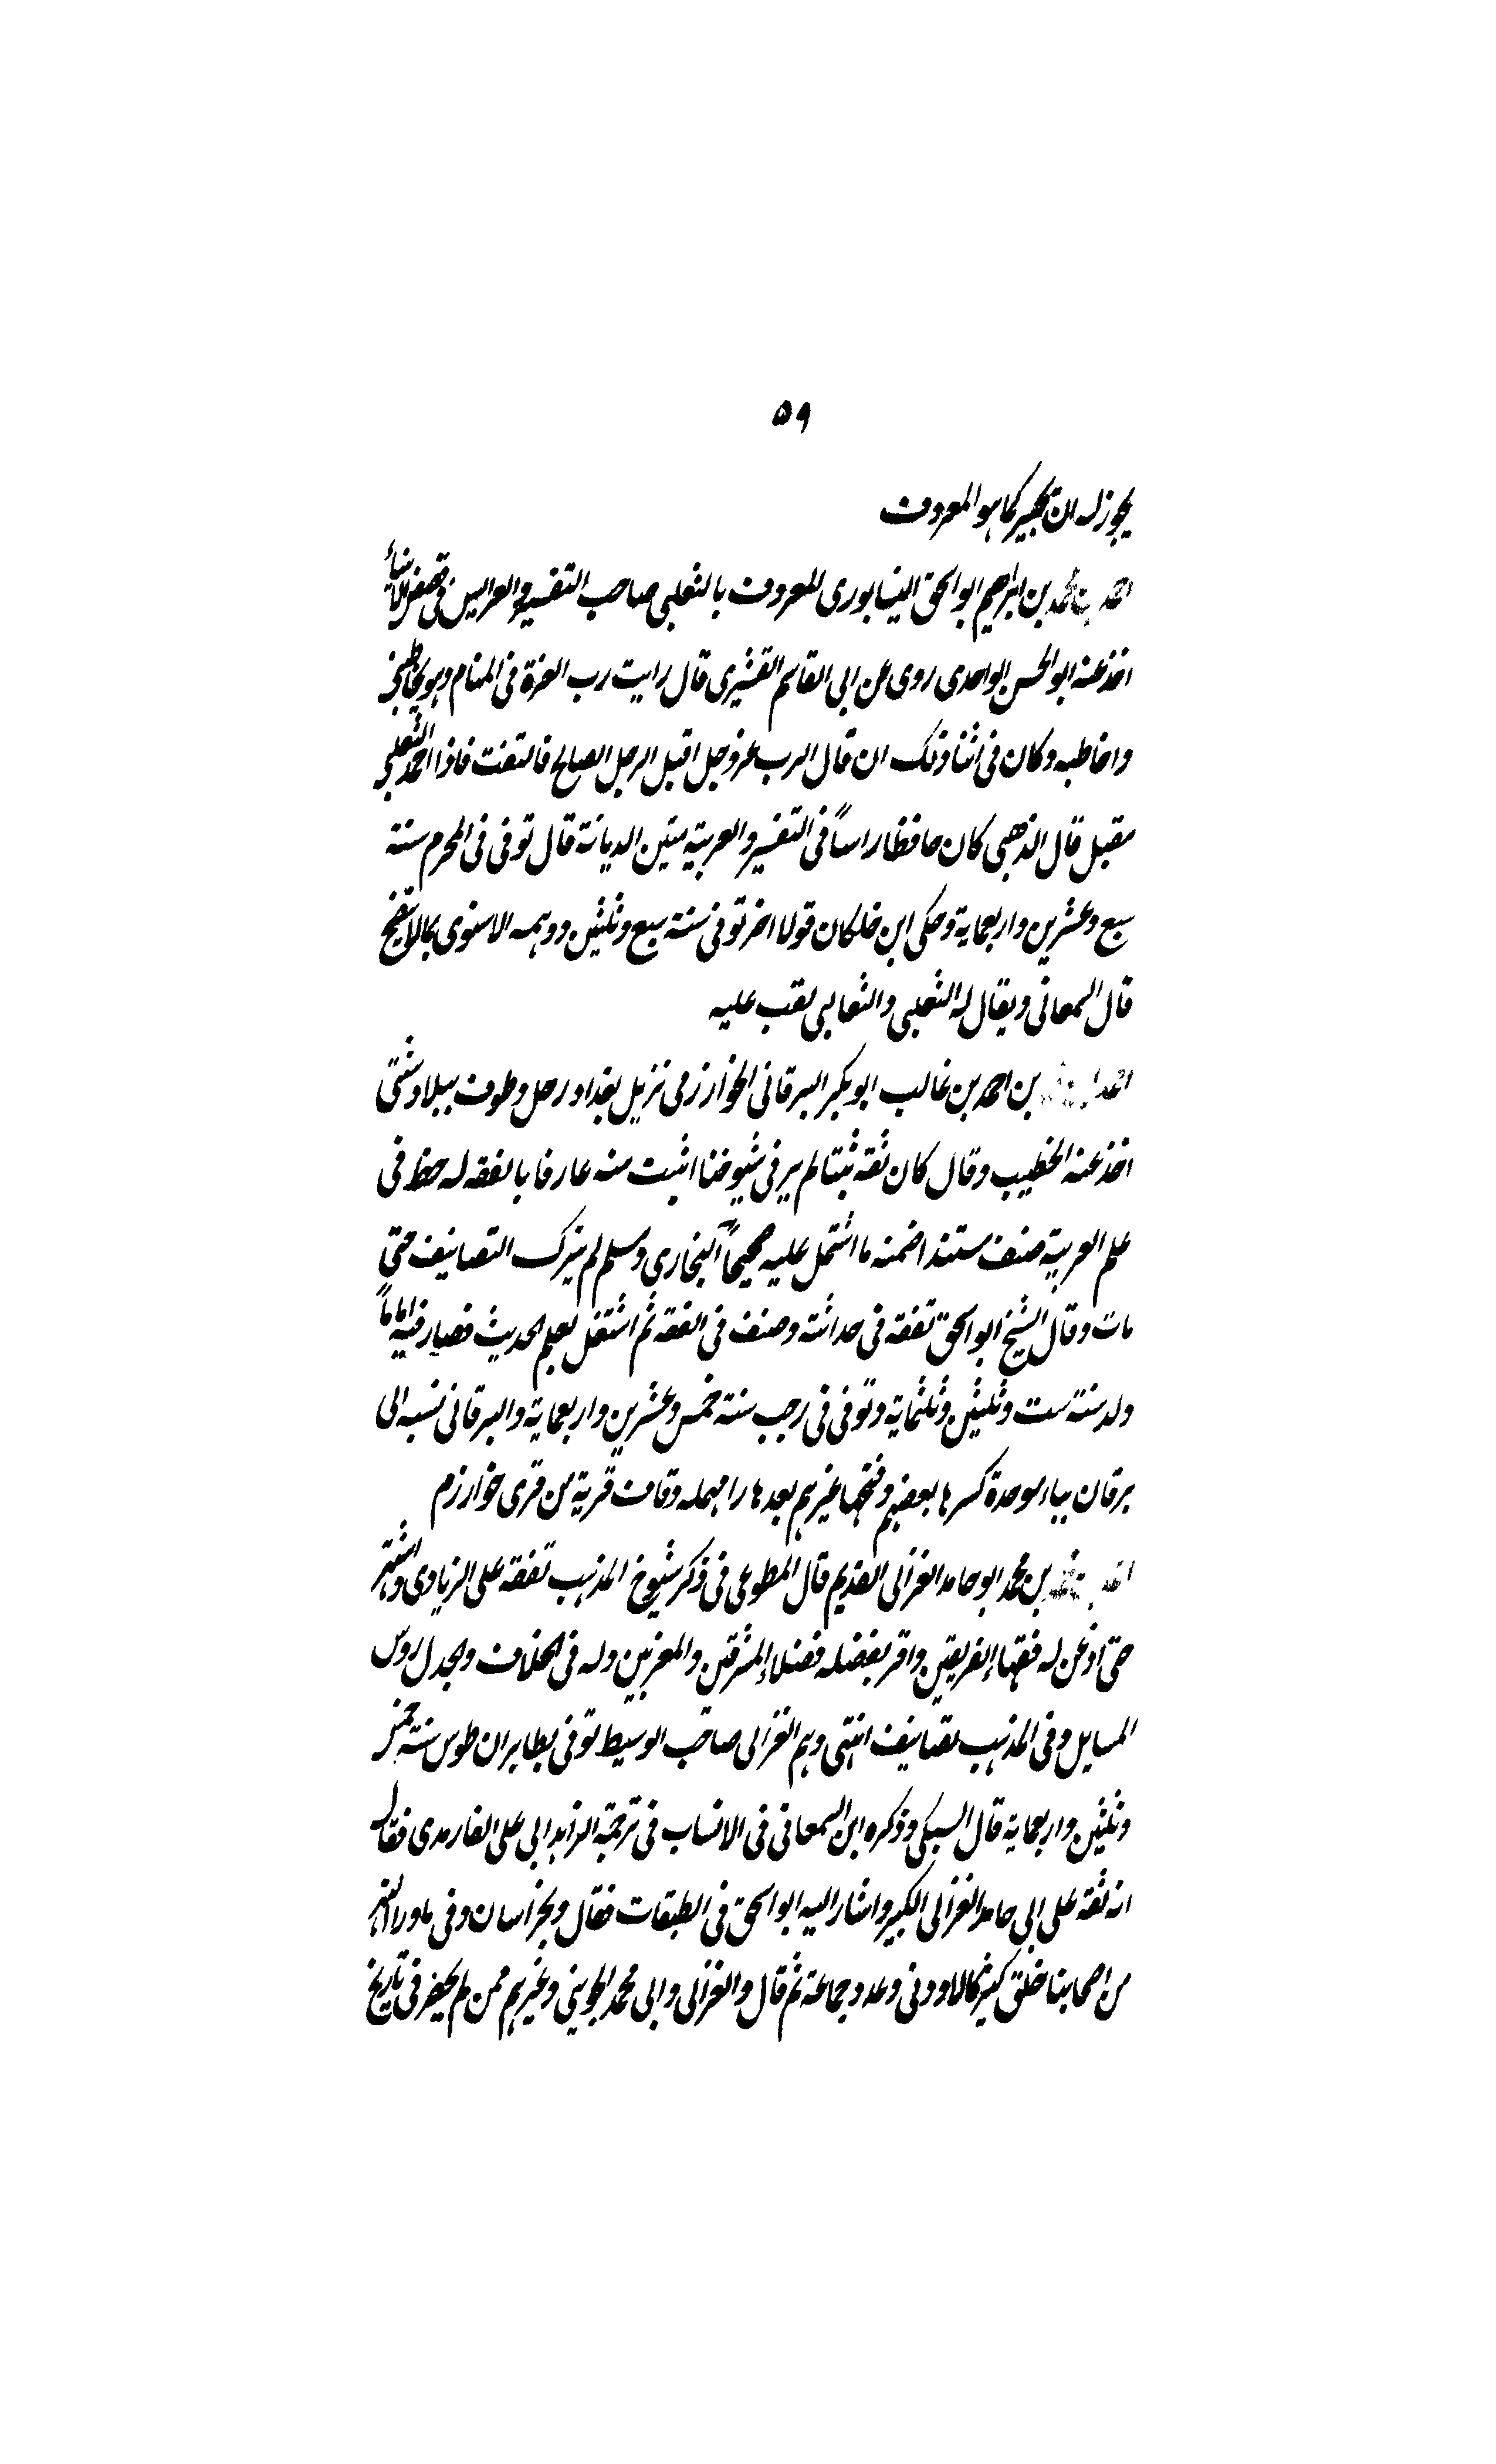 ۵۹
يجوز له ان يجبر كما هو المعروف
احمد بن محمد بن ابراهيم ابو اسحق النيسابورى المعروف بالثعلبى صاحب التفسير والعرايس فى قصص الانبياء
اخذ عنه ابو الحسن الواحدى روى عن ابى القاسم القشيرى قال رايت رب العزة فى المنام وهو يخاطبنى
واخاطبه وكان فى اثنا ذلك ان قال الرب عز وجل اقبل الرجل الصالح فالتفت فاذا احمد الثعلبى
مقبل قال الذهبى كان حافظا راساً فى التفسير والعربية متين الديانة قال توفى فى المحرم سنة
سبع وعشرين واربعماية وحكى ابن خلكان قولا اخر توفى سنة سبع وثلثين ووهمه الاسنوى بما لا يتضح
قال السمعانى ويقال له الثعلبى والثعالبى لقب عليه
احمد بن محمد بن احمد بن غالب ابو بكر البرقانى الخوارزمى نزيل بغداد رحل وطوف ببلاد شتى
اخذ عنه الخطيب وقال كان ثقة ثبتا لم ير فى شيوخنا اثبت منه عارفا بالفقه له حظ فى
علم العربية صنف مسندا ضمنه ما اشتمل عليه صحيحاً البخارى ومسلم لم يترك التصانيف حتى
مات وقال الشيخ ابو اسحق تفقه فى حداثته وصنف فى الفقه ثم اشتغل بعلم الحديث فصار فيه اماماً
ولد سنة ست وثلثين وثلثماية وتوفى فى رجب سنة خمس وعشرين واربعماية والبرقانى نسبه الى
برقان بباء موحدة كسرها بعضهم وفتحها غيرهم بعدها را مهمله وقاف قرية من قرى خوارزم
احمد بن محمد بن محمد ابو حامد الغزالى القديم قال المطوعى فى ذكر شيوخ المذهب تفقه على الزيادى واشتهر
حتى اذعن له فقهاء الفريقين واقر بفضله فضلاء المشرقين والمغربين وله فى الخلاف والجدل روس
المسايل وفى المذهب تصانيف انتهى وهم الغزالى صاحب الوسيط توفى بطابران طوس سنة خمس
وثلثين واربعماية قال السبكى وذكره ابن السمعانى فى الانساب فى ترجمة الزاهد ابى على الفارمدى فقال
انه تفقه على ابى حامد الغزالى الكبير واشار اليه ابو اسحق فى الطبقات فقال وبخراسان وفى ماورا النهر
من اصحابنا خلق كثير كالاودنى وعدد جماعة ثم قال والغزالى وابى محمد الجوينى وغيرهم ممن لم يحضر فى تاريخ